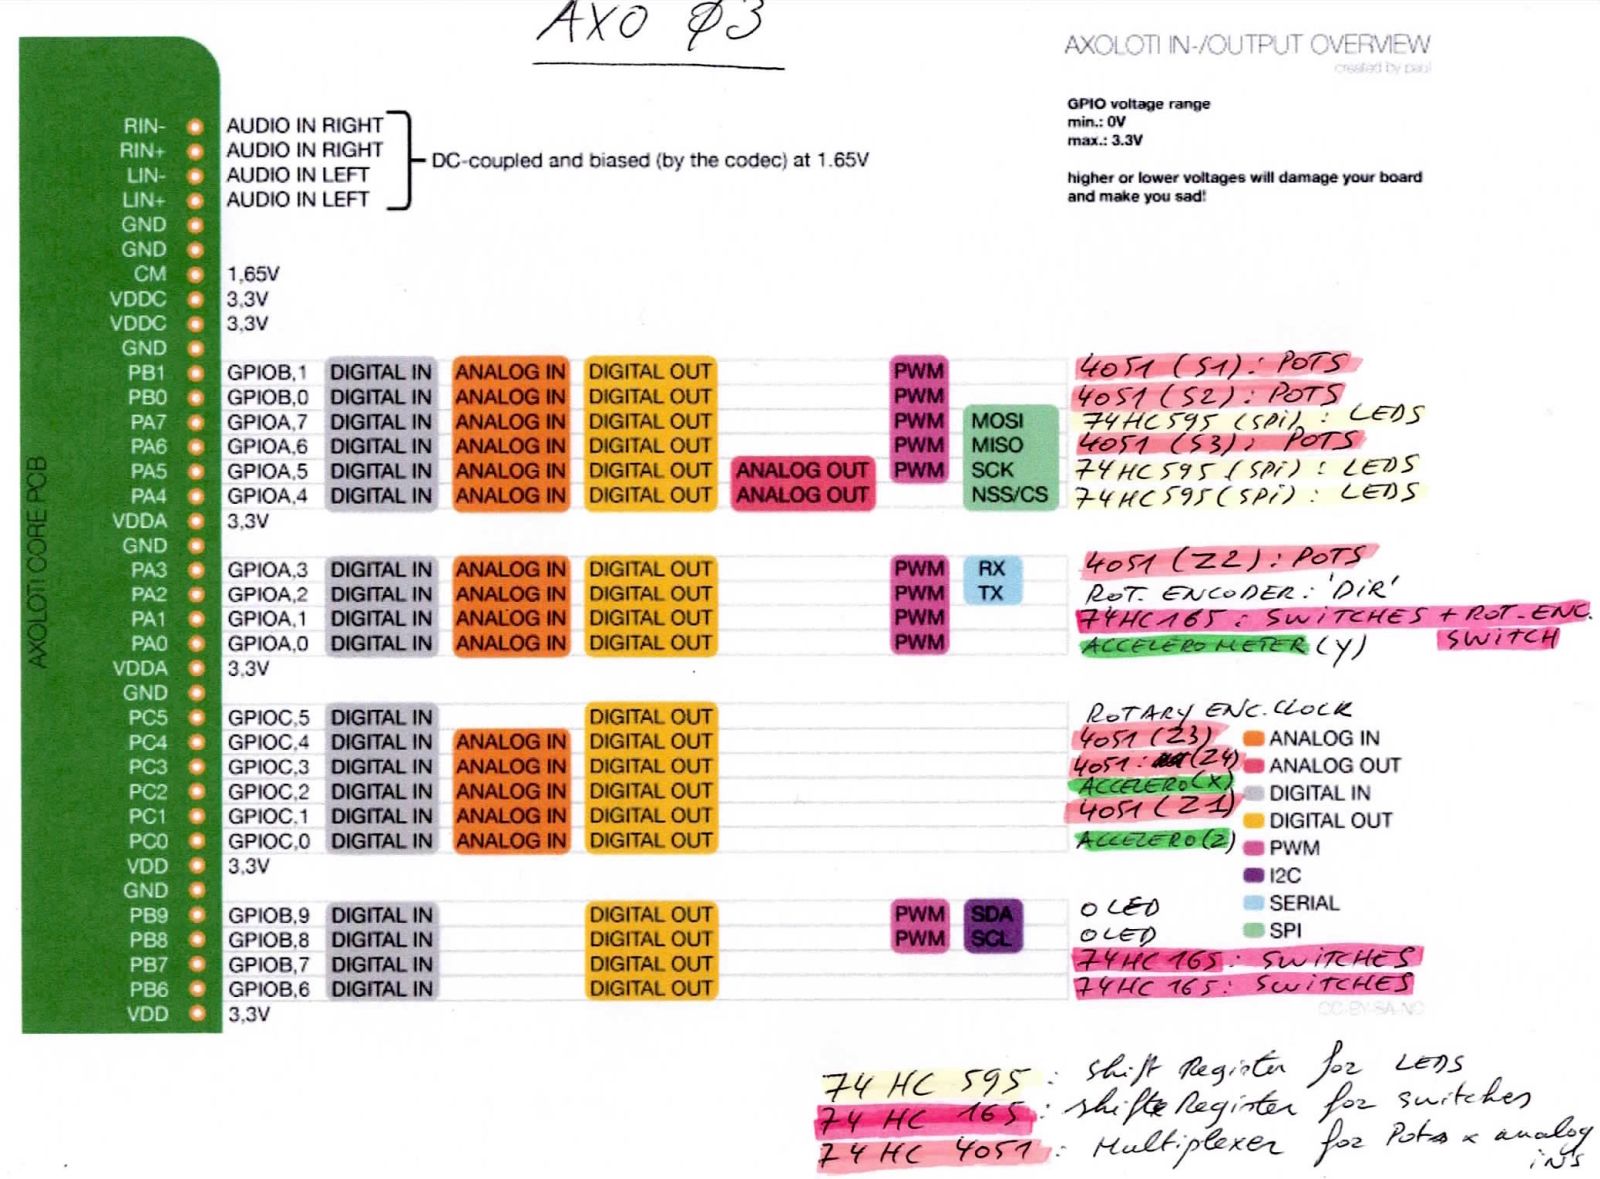 AXO Ø3
AXOLOTI IN-/OUTPUT OVERVIEW
created by paul
GPIO voltage range
min.: 0V
max.: 3.3V
higher or lower voltages will damage your board
and make you sad!
AXOLOTI CORE PCB
RIN- AUDIO IN RIGHT
RIN+ AUDIO IN RIGHT
DC-coupled and biased (by the codec) at 1.65V
LIN- AUDIO IN LEFT
LIN+ AUDIO IN LEFT
GND
GND
CM 1,65V
VDDC 3,3V
VDDC 3,3V
GND
PB1 GPIOB,1 DIGITAL IN ANALOG IN DIGITAL OUT PWM 4051 (S1): POTS
PB0 GPIOB,0 DIGITAL IN ANALOG IN DIGITAL OUT PWM 4051 (S2): POTS
PA7 GPIOA,7 DIGITAL IN ANALOG IN DIGITAL OUT PWM MOSI 74HC595 (SPi): LEDS
PA6 GPIOA,6 DIGITAL IN ANALOG IN DIGITAL OUT PWM MISO 4051 (S3): POTS
PA5 GPIOA,5 DIGITAL IN ANALOG IN DIGITAL OUT ANALOG OUT PWM SCK 74HC595 (SPi): LEDS
PA4 GPIOA,4 DIGITAL IN ANALOG IN DIGITAL OUT ANALOG OUT NSS/CS 74HC595 (SPi): LEDS
VDDA 3,3V
GND
PA3 GPIOA,3 DIGITAL IN ANALOG IN DIGITAL OUT PWM RX 4051 (Z2): POTS
PA2 GPIOA,2 DIGITAL IN ANALOG IN DIGITAL OUT PWM TX ROT. ENCODER: 'DiR'
PA1 GPIOA,1 DIGITAL IN ANALOG IN DIGITAL OUT PWM 74HC165: SWiTCHES + ROT-ENC.
PA0 GPIOA,0 DIGITAL IN ANALOG IN DIGITAL OUT PWM ACCELEROMETER (Y) SWiTCH
VDDA 3,3V
GND
PC5 GPIOC,5 DIGITAL IN DIGITAL OUT ROTARY ENC.CLOCK
PC4 GPIOC,4 DIGITAL IN ANALOG IN DIGITAL OUT 4051 (Z3)
PC3 GPIOC,3 DIGITAL IN ANALOG IN DIGITAL OUT 4051: (Z4)
PC2 GPIOC,2 DIGITAL IN ANALOG IN DIGITAL OUT ACCELERO(X)
PC1 GPIOC,1 DIGITAL IN ANALOG IN DIGITAL OUT 4051 (Z1)
PC0 GPIOC,0 DIGITAL IN ANALOG IN DIGITAL OUT ACCELERO(Z)
VDD 3,3V
GND
PB9 GPIOB,9 DIGITAL IN DIGITAL OUT PWM SDA OLED
PB8 GPIOB,8 DIGITAL IN DIGITAL OUT PWM SCL OLED
PB7 GPIOB,7 DIGITAL IN DIGITAL OUT 74HC165: SWiTCHES
PB6 GPIOB,6 DIGITAL IN DIGITAL OUT 74HC165: SWiTCHES
VDD 3,3V
ANALOG IN
ANALOG OUT
DIGITAL IN
DIGITAL OUT
PWM
I2C
SERIAL
SPI
CC-BY-SA-NC
74 HC 595: Shift Register for LEDS
74 HC 165: Shift Register for switches
74 HC 4051: Multiplexer for Pots x analog
iNS